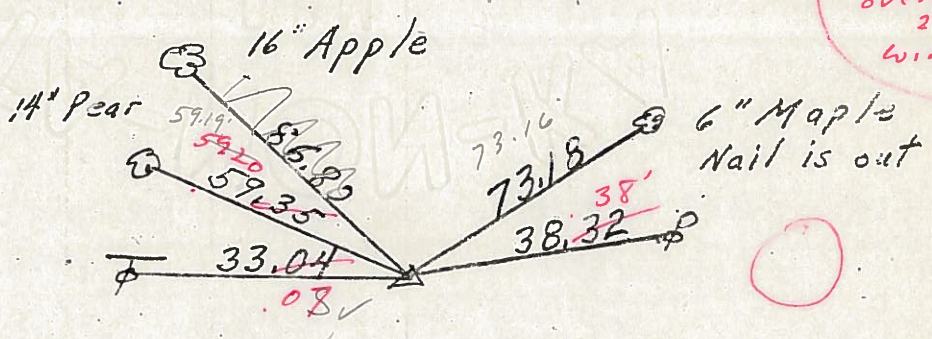 16" Apple
14" Pear
59.19
59.20
86.80
59.35
33.04
.08
73.16
73.18
38.32
38'
6" Maple
Nail is out
2